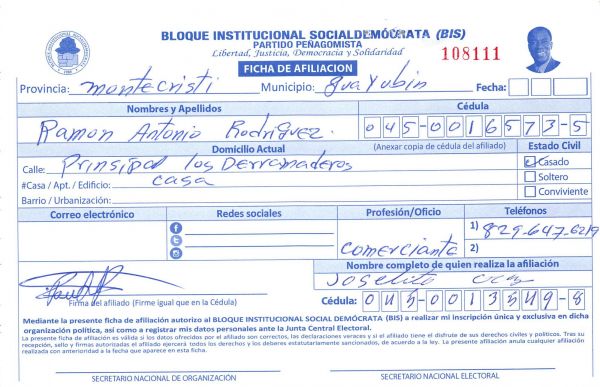 BLOQUE INSTITUCIONAL SOCIALDEMÓCRATA (BIS)
PARTIDO PEÑAGOMISTA
Libertad, Justicia, Democracia y Solidaridad
108111
FICHA DE AFILIACION
Provincia: montecristi Municipio: Guayubin Fecha:
Nombres y Apellidos Cédula
Ramon Antonio Rodriguez. 045-0016573-5
Domicilio Actual (Anexar copia de cédula del afiliado) Estado Civil
Calle: Principal los Derramaderos Casado
#Casa / Apt. / Edificio: casa Soltero
Barrio / Urbanización: Conviviente
Correo electrónico Redes sociales Profesión/Oficio Teléfonos
1) 829-647-6219
comerciante 2)
Nombre completo de quien realiza la afiliación
Joselito
Firma del afiliado (Firme igual que en la Cédula) Cédula: 045-0013549-8
Mediante la presente ficha de afiliación autorizo al BLOQUE INSTITUCIONAL SOCIAL DEMÓCRATA (BIS) a realizar mi inscripción única y exclusiva en dicha
organización política, así como a registrar mis datos personales ante la Junta Central Electoral.
La presente ficha de afiliación es válida si los datos ofrecidos por el afiliado son correctos, las declaraciones veraces y si el titular es disfrute de sus derechos civiles y políticos. Tras su
recepción, sello y firmas autorizadas el afiliado ejercerá todos los derechos y los deberes estatutariamente sancionados, de acuerdo a la ley. La presente afiliación anula cualquier afiliación
realizada con anterioridad a la fecha que aparece en esta ficha.
SECRETARIO NACIONAL DE ORGANIZACIÓN SECRETARIO NACIONAL ELECTORAL